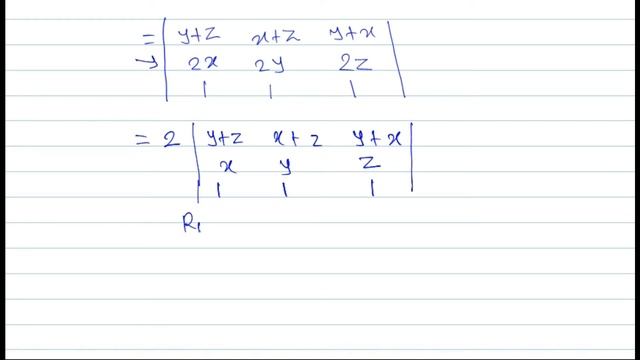 = | y+z x+z y+x |
→ | 2x 2y 2z |
| 1 1 1 |
= 2 | y+z x+z y+x |
| x y z |
| 1 1 1 |
R₁